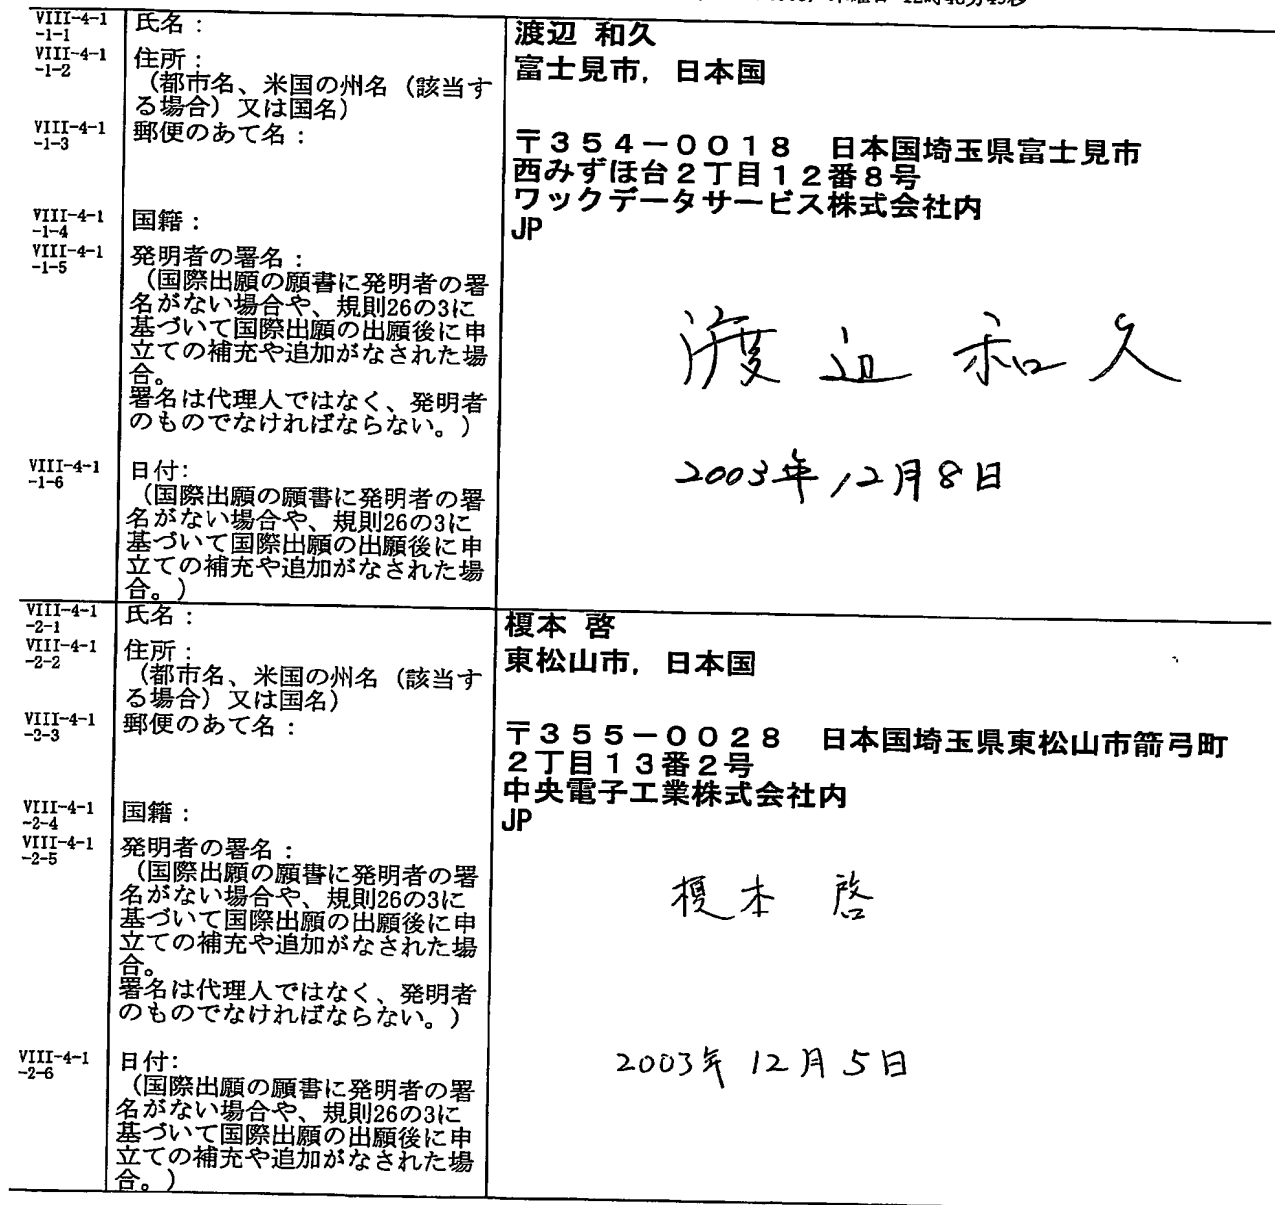 VIII-4-1
-1-1
氏名：
渡辺 和久
VIII-4-1
-1-2
住所：
（都市名、米国の州名（該当す
る場合）又は国名）
富士見市, 日本国
VIII-4-1
-1-3
郵便のあて名：
〒３５４－００１８　日本国埼玉県富士見市
西みずほ台２丁目１２番８号
ワックデータサービス株式会社内
VIII-4-1
-1-4
国籍：
JP
VIII-4-1
-1-5
発明者の署名：
（国際出願の願書に発明者の署
名がない場合や、規則26の3に
基づいて国際出願の出願後に申
立ての補充や追加がなされた場
合。
署名は代理人ではなく、発明者
のものでなければならない。）
渡辺 和久
VIII-4-1
-1-6
日付:
（国際出願の願書に発明者の署
名がない場合や、規則26の3に
基づいて国際出願の出願後に申
立ての補充や追加がなされた場
合。）
2003年12月8日
VIII-4-1
-2-1
氏名：
榎本 啓
VIII-4-1
-2-2
住所：
（都市名、米国の州名（該当す
る場合）又は国名）
東松山市, 日本国
VIII-4-1
-2-3
郵便のあて名：
〒３５５－００２８　日本国埼玉県東松山市箭弓町
２丁目１３番２号
中央電子工業株式会社内
VIII-4-1
-2-4
国籍：
JP
VIII-4-1
-2-5
発明者の署名：
（国際出願の願書に発明者の署
名がない場合や、規則26の3に
基づいて国際出願の出願後に申
立ての補充や追加がなされた場
合。
署名は代理人ではなく、発明者
のものでなければならない。）
榎本 啓
VIII-4-1
-2-6
日付:
（国際出願の願書に発明者の署
名がない場合や、規則26の3に
基づいて国際出願の出願後に申
立ての補充や追加がなされた場
合。）
2003年12月5日